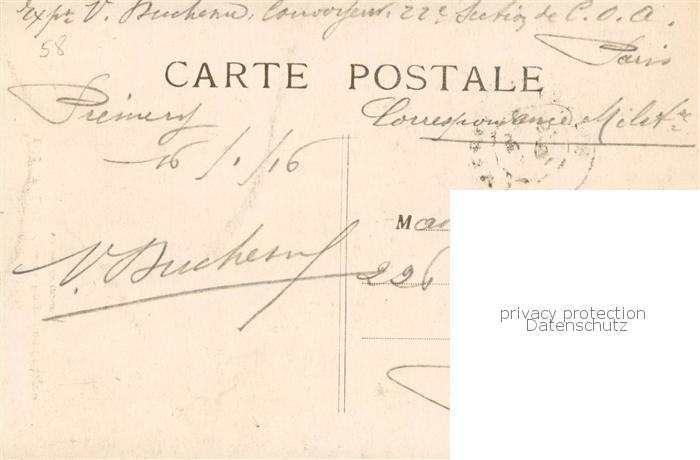 Expr V. Duchesne, Convoyeur, 22e Section de C.O.A.
58
Paris
CARTE POSTALE
Prémery
Correspondance Milit.re
16/1/16
Mad
V. Duchesne
226
privacy protection
Datenschutz